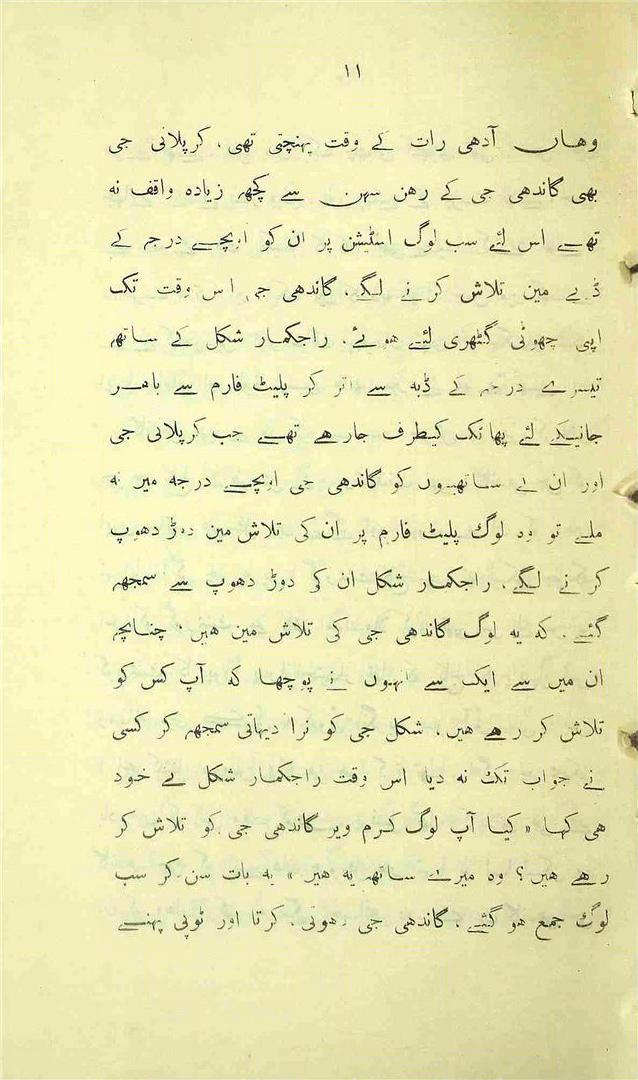 ۱۱
وهاں آدھی رات کے وقت پہنچتی تھی. کرپلانی جی
بھی گاندھی جی کے رهن سہن سے کچھہ زیادہ واقف نہ
تھے اس لئے سب لوگ اسٹیشن پر ان کو اونچے درجہ کے
ڈبے مین تلاش کرنے لگے. گاندھی جی اس وقت تک
اپنی چھوٹی گٹھری لئے ہوئے. راجکمار شکل کے ساتھہ
تیسرے درجہ کے ڈبہ سے اتر کر پلیٹ فارم سے باهر
جانیکے لئے پھاٹک کیطرف جارهے تھے جب کرپلانی جی
اور ان کے ساتھیوں کو گاندھی جی اونچے درجہ میں نہ
ملے تو وہ لوگ پلیٹ فارم پر ان کی تلاش مین دوڑ دھوپ
کرنے لگے. راجکمار شکل ان کی دوڑ دھوپ سے سمجھہ
گئے. کہ یہ لوگ گاندھی جی کی تلاش مین هیں' چنانچہ
ان میں سے ایک سے انہوں نے پوچھا کہ آپ کس کو
تلاش کر رهے هیں. شکل جی کو نرا دیہاتی سمجھہ کر کسی
نے جواب تک نہ دیا اس وقت راجکمار شکل نے خود
هی کہا « کیا آپ لوگ کرم ویر گاندھی جی کو تلاش کر
رهے هیں؟ وہ میرے ساتھہ یہ هیں » یہ بات سن کر سب
لوگ جمع هو گئیے. گاندھی جی دھوتی. کرتا اور ٹوپی پہنے